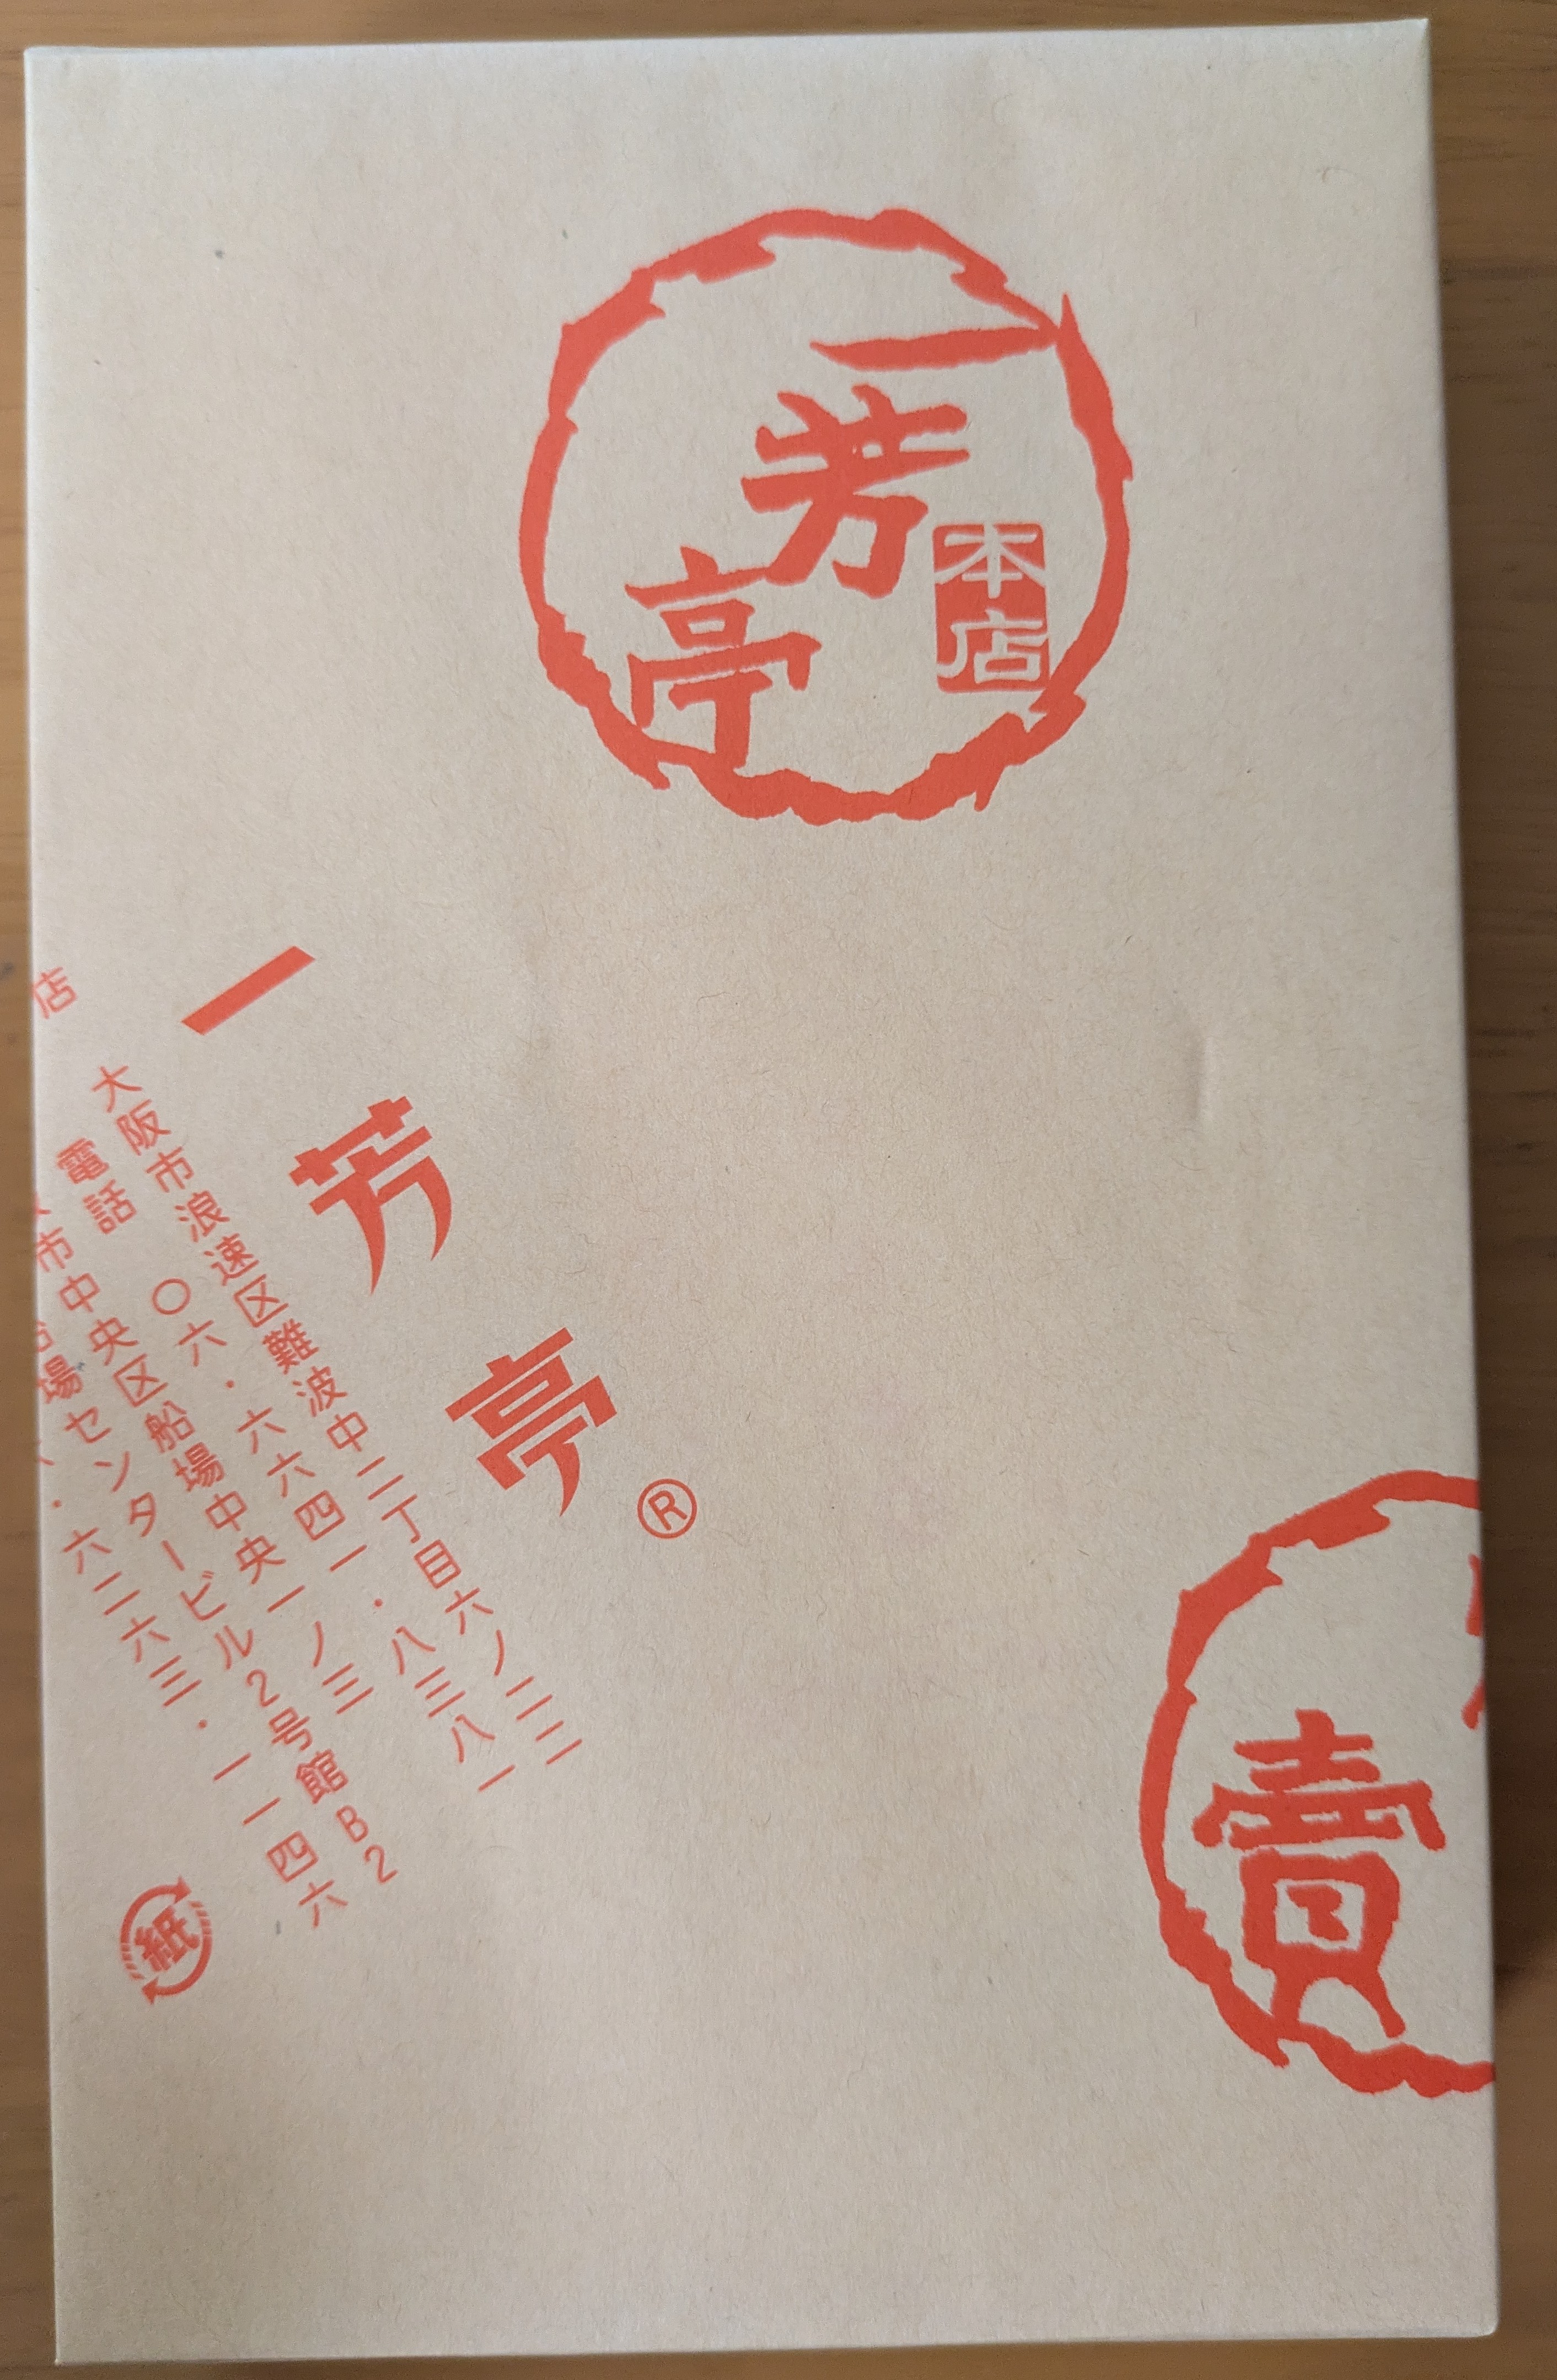 一芳亭
本店
一芳亭®
大阪市浪速区難波中二丁目六ノ二二
電話 〇六・六六四一・八三八一
店
市中央区船場中央一ノ三
場センタービル2号館B2
・六二六三・一一四六
紙
賣